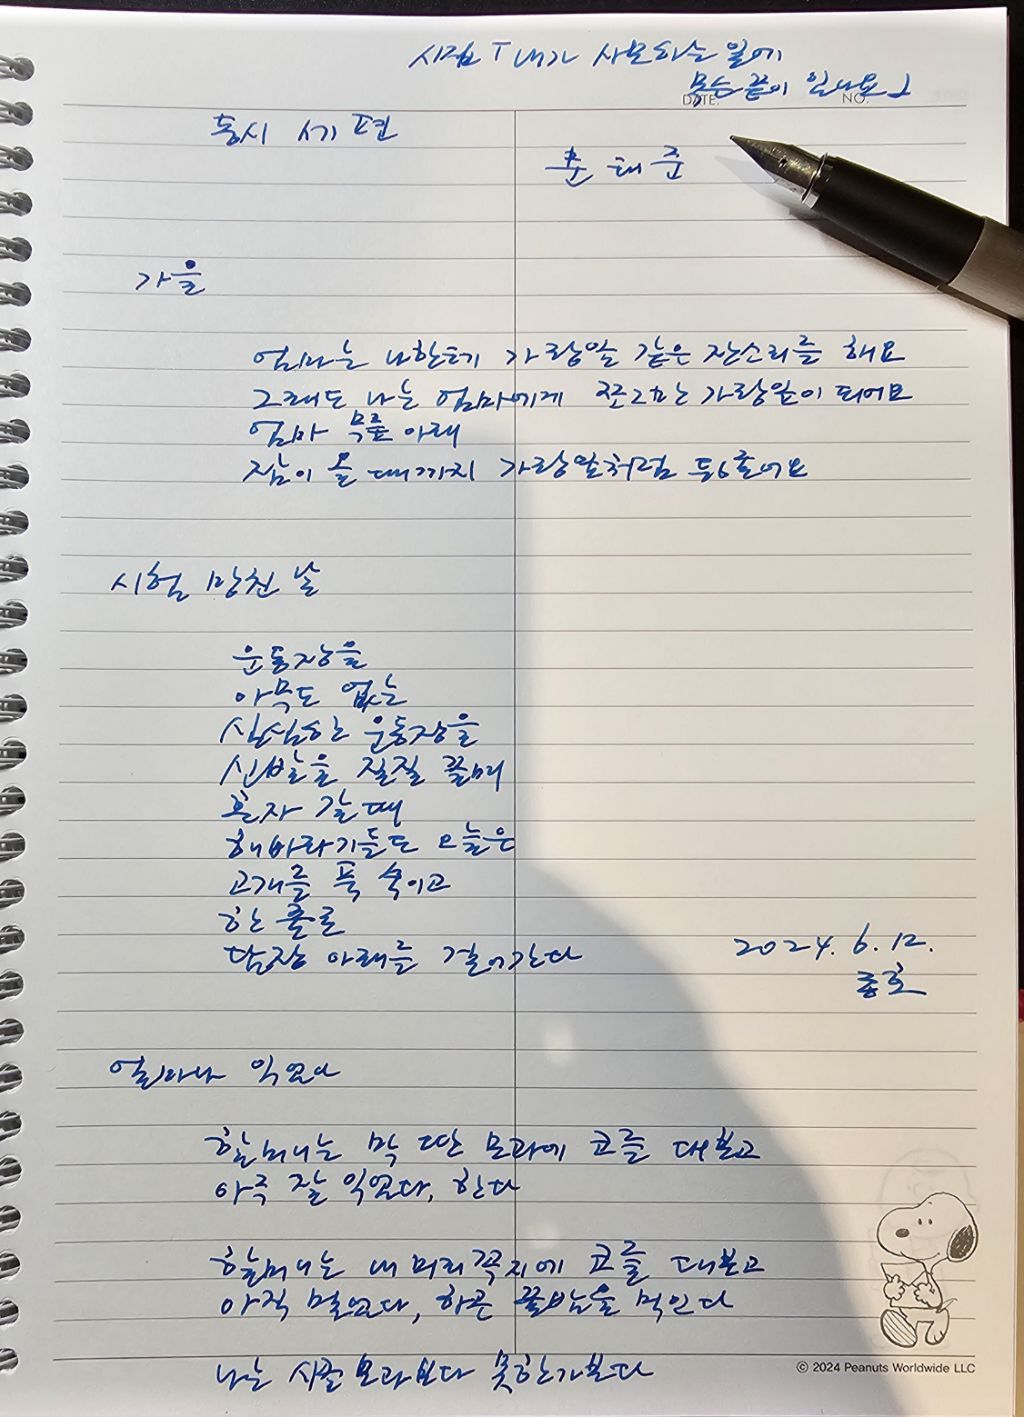 시집 「내가 사모하는 일에
무슨 끝이 있나요」
DATE.
NO.
동시 세 편
문태준
가을
엄마는 나한테 가랑잎 같은 잔소리를 해요
그래도 나는 엄마에게 쪼그만 가랑잎이 되어요
엄마 무릎 아래
잠이 올 때까지 가랑잎처럼 뒹굴어요
시험 망친 날
운동장을
아무도 없는
심심한 운동장을
신발을 질질 끌며
혼자 갈 때
해바라기들도 오늘은
고개를 푹 숙이고
한 줄로
담장 아래를 걸어간다
2024. 6. 12.
종호
얼마나 익었나
할머니는 막 딴 모과에 코를 대보고
아주 잘 익었다, 한다
할머니는 내 머리꼭지에 코를 대보고
아직 멀었다, 하곤 꿀밤을 먹인다
나는 시골 모과보다 못한가보다
© 2024 Peanuts Worldwide LLC